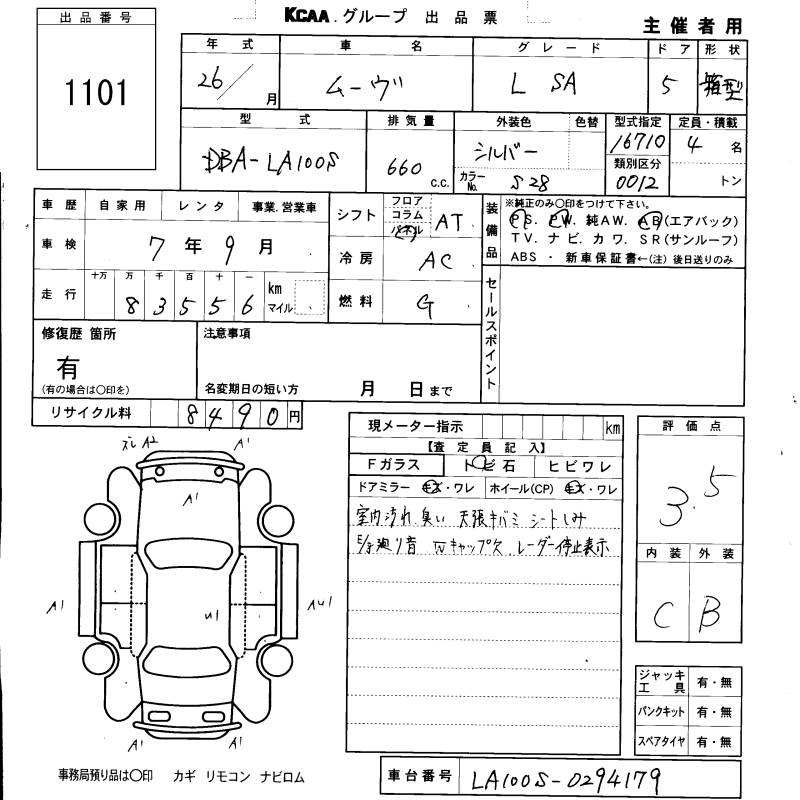 KCAA.グループ 出品票
主催者用
出品番号
1101
年式 車名 グレード ドア 形状
26/ 月 ムーヴ L SA 5 箱型
型式 排気量 外装色 色替 型式指定 定員・積載
DBA-LA100S 660 c.c. シルバー 16710 4 名
カラーNo. S28 類別区分 0012 トン
車歴 自家用 レンタ 事業.営業車
シフト フロア コラム パネル AT
車検 7年9月
冷房 AC
走行 十万 万 千 百 十 一 km マイル
8 3 5 5 6
燃料 G
装備品 ※純正のみ○印をつけて下さい。
PS. PW. 純AW. AB(エアバック)
TV. ナビ. カワ. SR(サンルーフ)
ABS ・ 新車保証書←(注) 後日送りのみ
セールスポイント
修復歴 箇所
有
(有の場合は○印を)
注意事項
名変期日の短い方 月 日まで
リサイクル料 8490円
現メーター指示 km
【査定員記入】
Fガラス トビ石 ヒビワレ
ドアミラー キズ・ワレ ホイール(CP) キズ・ワレ
室内汚れ 臭い 天張キバミ シートしみ
E/g廻り音 Wキャップ欠 レーダー停止表示
評価点
3.5
内装 外装
C B
ズレ A2 A1
A1
A1 U1 AU1
A1 A1
ジャッキ工具 有・無
パンクキット 有・無
スペアタイヤ 有・無
事務局預り品は○印 カギ リモコン ナビロム
車台番号 LA100S-0294179